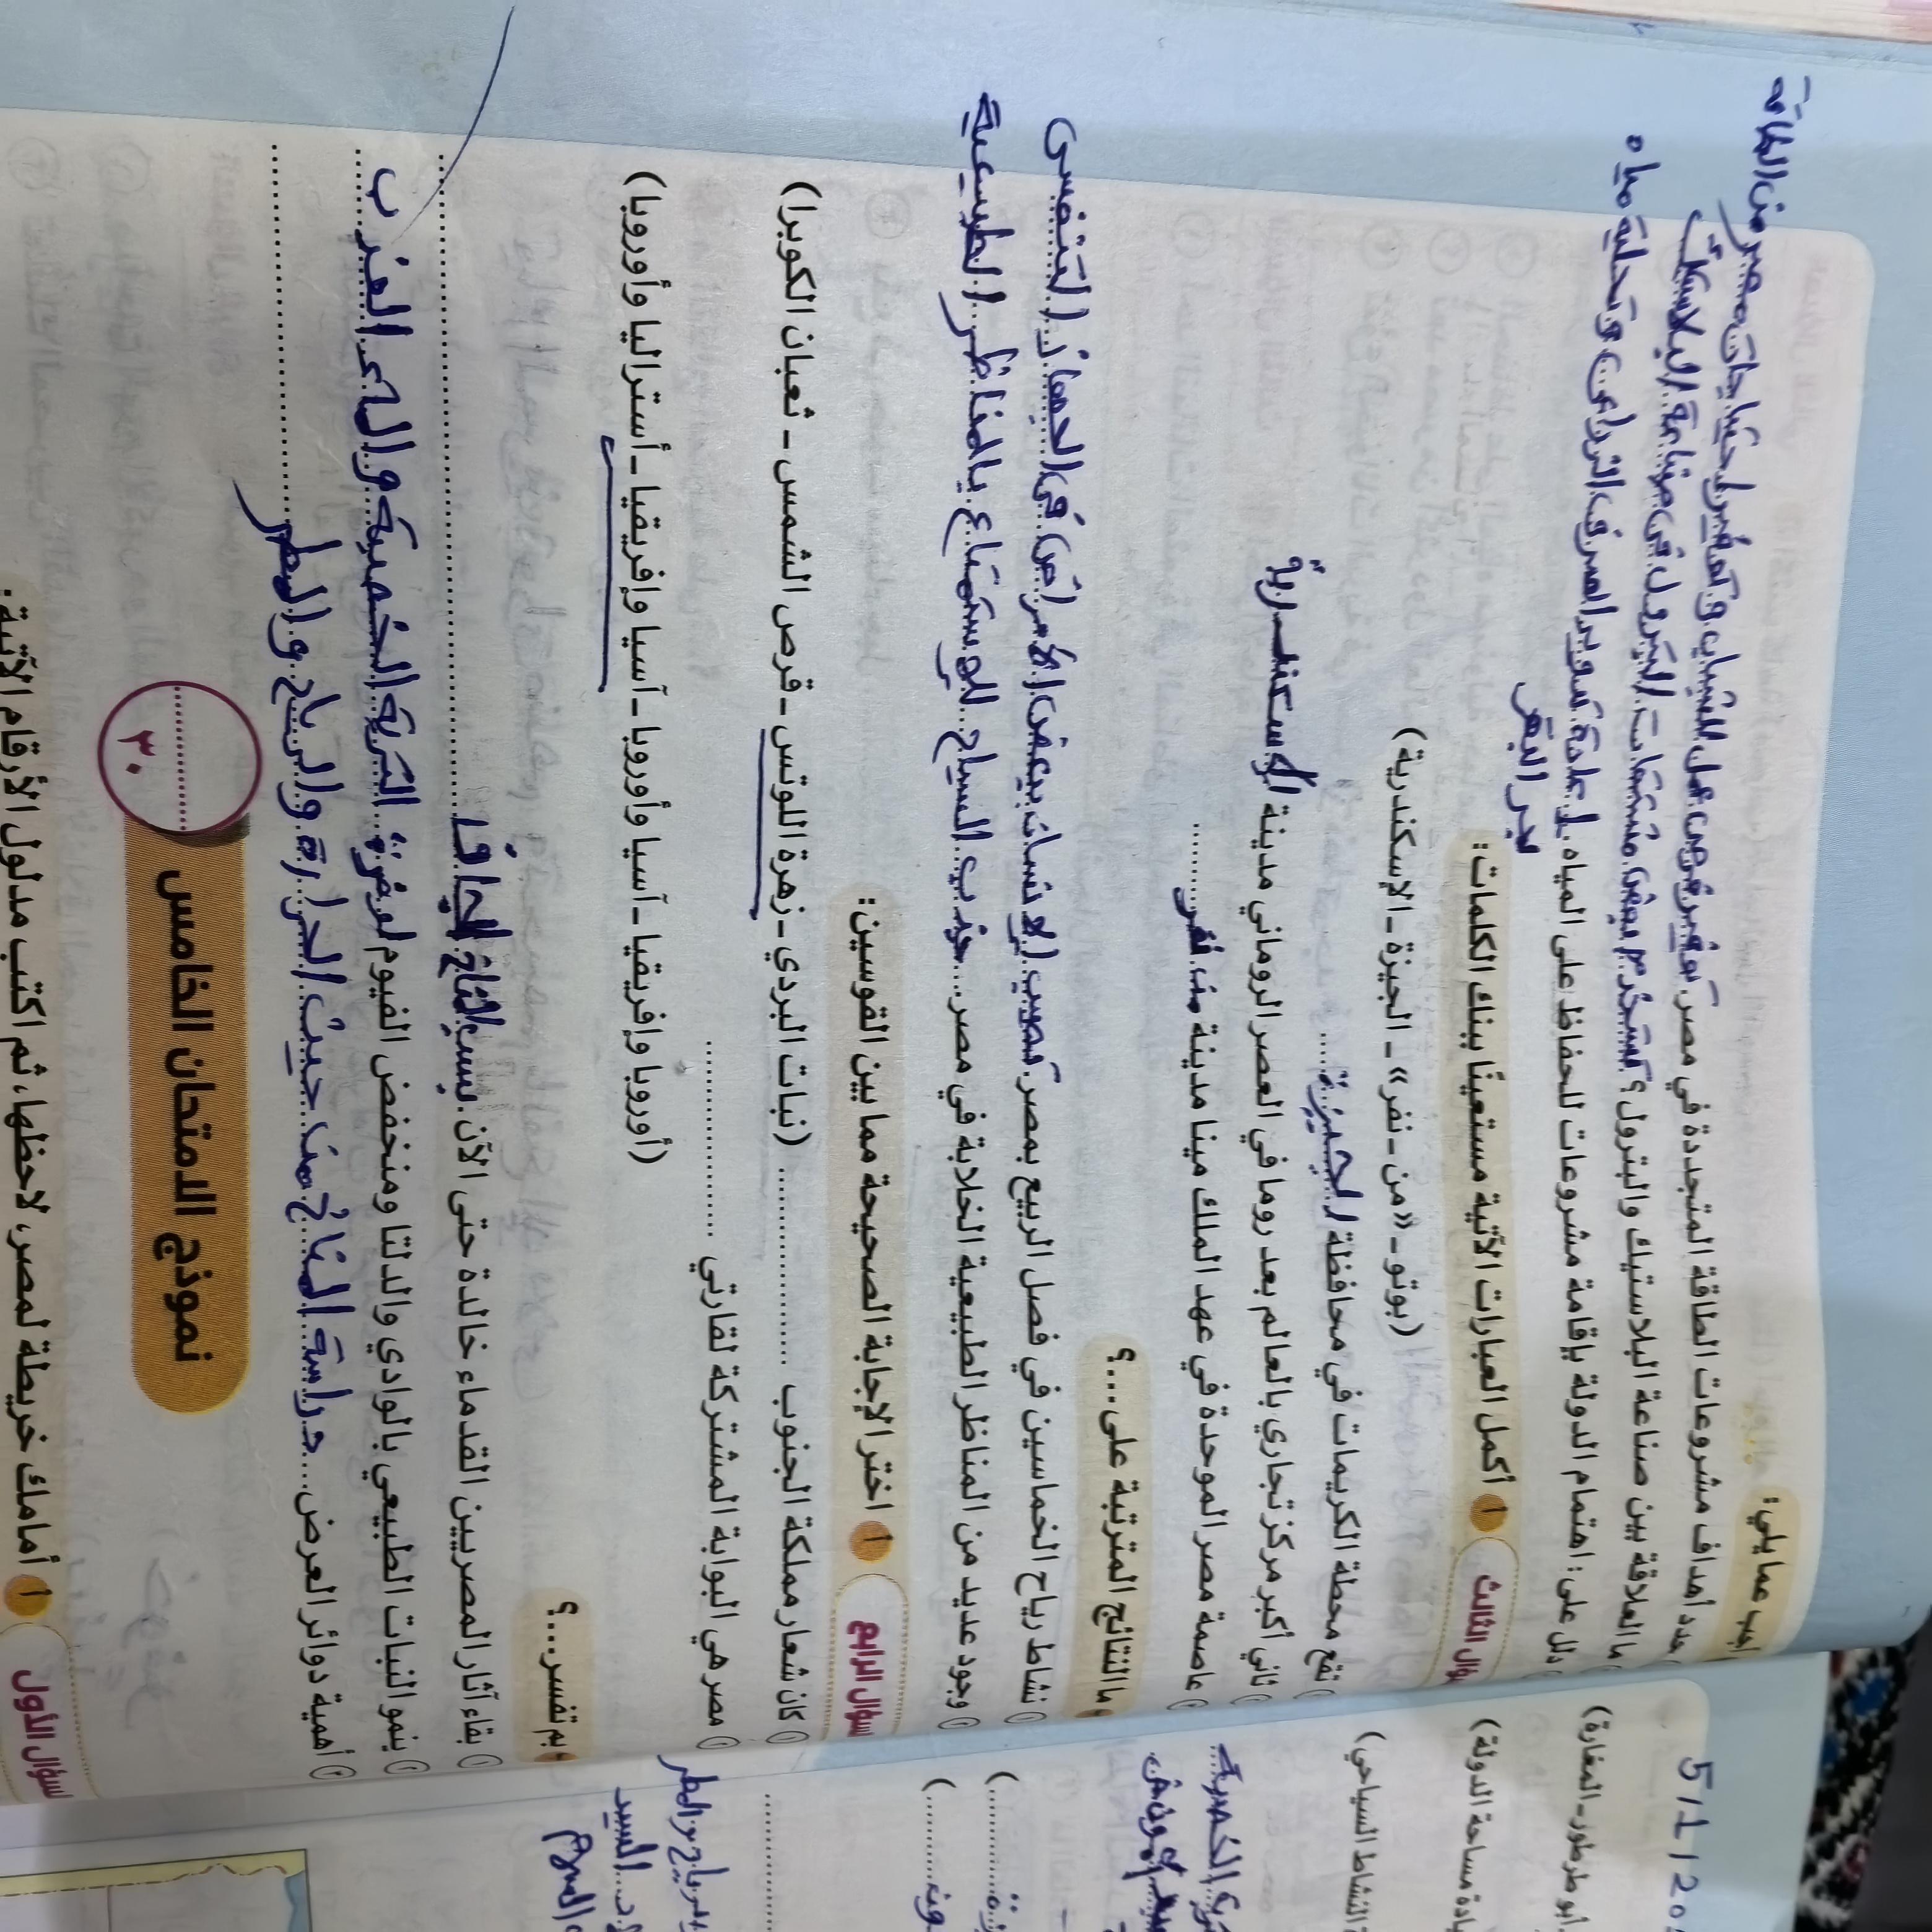 أجب عما يلي:
حدد أهداف مشروعات الطاقة المتجددة في مصر. توفير فرص عمل للشباب وتوفير احتياجات مصر من الطاقة
ما العلاقة بين صناعة البلاستيك والبترول؟ تستخدم بعض مشتقات البترول فى صناعة البلاستك
دلل على: اهتمام الدولة بإقامة مشروعات للحفاظ على المياه. إعادة تدوير الصرف الزراعى وتحلية مياه
بحر البقر
سؤال الثالث
أ أكمل العبارات الآتية مستعينًا ببنك الكلمات:
(بوتو - «من - نفر» - الجيزة - الإسكندرية)
١ تقع محطة الكريمات في محافظة الجيزة
٢ ثاني أكبر مركز تجاري بالعالم بعد روما في العصر الروماني مدينة الإسكندرية
٣ عاصمة مصر الموحدة في عهد الملك مينا مدينة من نفر
ب ما النتائج المترتبة على...؟
١ نشاط رياح الخماسين في فصل الربيع بمصر. تصيب الإنسان ببعض الأمراض فى الجهاز التنفسى
٢ وجود عديد من المناظر الطبيعية الخلابة في مصر. جذب السياح للإستمتاع بالمناظر الطبيعية
سؤال الرابع
أ اختر الإجابة الصحيحة مما بين القوسين:
١ كان شعار مملكة الجنوب ............ (نبات البردي - زهرة اللوتس - قرص الشمس - ثعبان الكوبرا)
٢ مصر هي البوابة المشتركة لقارتي ............
(أوروبا وإفريقيا - آسيا وأوروبا - آسيا وإفريقيا - أستراليا وأوروبا)
ب بم تفسر...؟
١ بقاء آثار المصريين القدماء خالدة حتى الآن. بسبب المناخ الجاف
٢ ينمو النبات الطبيعي بالوادي والدلتا ومنخفض الفيوم لوفرة التربة الخصبة والماء العذب
٣ أهمية دوائر العرض. دراسة المناخ من حيث الحرارة والرياح والمطر
نموذج الامتحان الخامس
٣٠
سؤال الأول
أ أمامك خريطة لمصر، لاحظها، ثم اكتب مدلول الأرقام الآتية.
أبو طرطور - المغارة)
مساحة الدولة)
النشاط السياحي)